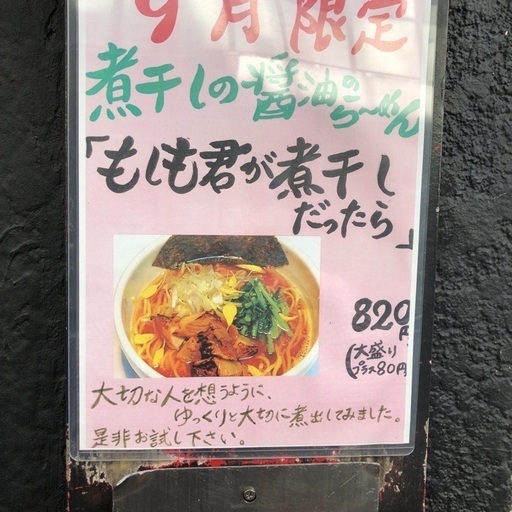 9月限定
煮干しの醤油のらーめん
「もしも君が煮干し
だったら」
820円
(大盛り
プラス80円)
大切な人を想うように、
ゆっくりと大切に煮出してみました。
是非お試し下さい。